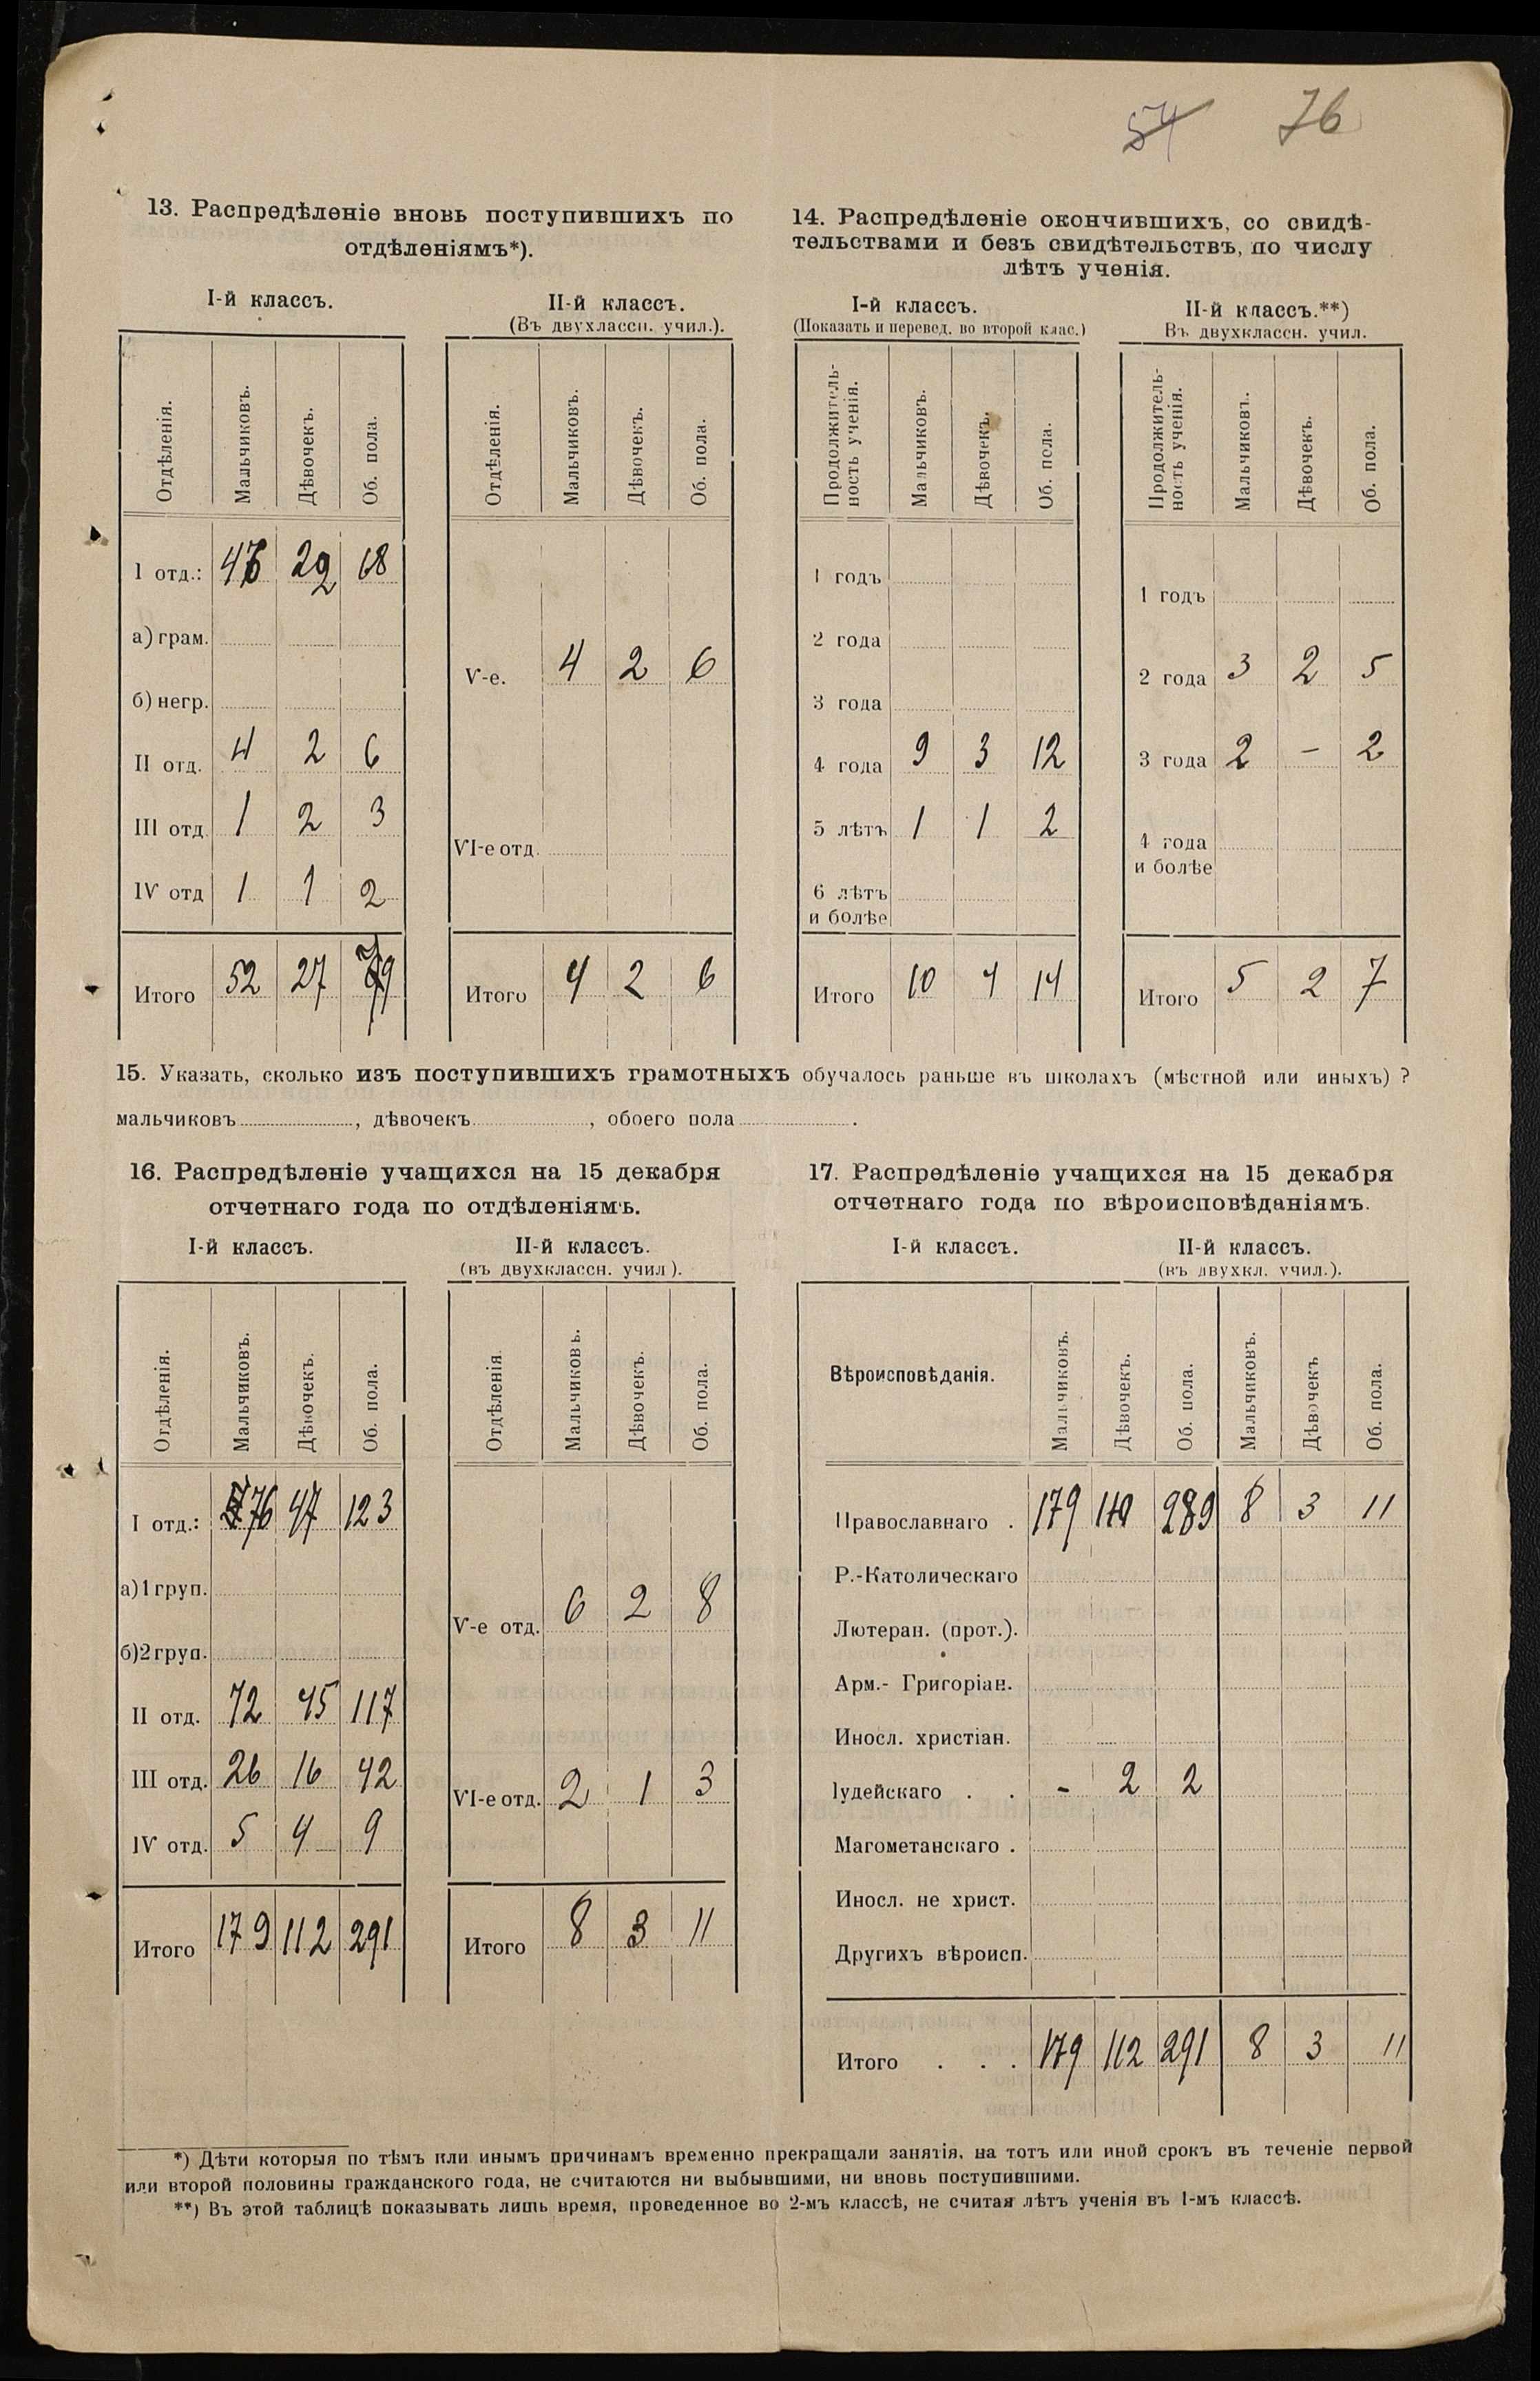 54 76
13. Распредѣленіе вновь поступившихъ по
отдѣленіямъ*).
I-й классъ.
II-й классъ.
(Въ двухлассн. учил.).
Отдѣленія. Мальчиковъ. Дѣвочекъ. Об. пола.
Отдѣленія. Мальчиковъ. Дѣвочекъ. Об. пола.
I отд.: 46 68
а) грам.
б) негр.
II отд. 4 2 6
III отд. 1 2 3
IV отд 1 1 2
Итого 52 27 79
V-е. 4 2 6
VI-е отд.
Итого 4 2 6
14. Распредѣленіе окончившихъ, со свидѣ-
тельствами и безъ свидѣтельствъ, по числу
лѣтъ ученія.
I-й классъ.
(Показать и перевед. во второй клас.)
II-й классъ.**)
Въ двухклассн. учил.
Продолжитель-
ность ученія. Мальчиковъ. Дѣвочекъ. Об. пола.
Продолжитель-
ность ученія. Мальчиковъ. Дѣвочекъ. Об. пола.
1 годъ
2 года
3 года
4 года 9 3 12
5 лѣтъ 1 1 2
6 лѣтъ
и болѣе
Итого 10 4 14
1 годъ
2 года 3 2 5
3 года 2 – 2
4 года
и болѣе
Итого 5 2 7
15. Указать, сколько изъ поступившихъ грамотныхъ обучалось раньше въ школахъ (мѣстной или иныхъ) ?
мальчиковъ, дѣвочекъ, обоего пола.
16. Распредѣленіе учащихся на 15 декабря
отчетнаго года по отдѣленіямъ.
I-й классъ.
II-й классъ.
(въ двухклассн. учил).
Отдѣленія. Мальчиковъ. Дѣвочекъ. Об. пола.
Отдѣленія. Мальчиковъ. Дѣвочекъ. Об. пола.
I отд.: 76 47 123
а) 1 груп.
б) 2 груп.
II отд. 72 45 117
III отд. 26 16 42
IV отд. 5 4 9
Итого 179 112 291
V-е отд. 6 2 8
VI-е отд. 2 1 3
Итого 8 3 11
17. Распредѣленіе учащихся на 15 декабря
отчетнаго года по вѣроисповѣданіямъ.
I-й классъ.
II-й классъ.
(въ двухкл. учил.).
Вѣроисповѣданія. Мальчиковъ. Дѣвочекъ. Об. пола. Мальчиковъ. Дѣвочекъ Об. пола.
Православнаго . 179 110 289 8 3 11
Р.-Католическаго
Лютеран. (прот.).
Арм.- Григоріан.
Иносл. христіан.
Іудейскаго . . – 2 2
Магометанскаго .
Иносл. не христ.
Другихъ вѣроисп.
Итого . . . 179 112 291 8 3 11
*) Дѣти которыя по тѣмъ или инымъ причинамъ временно прекращали занятія, на тотъ или иной срокъ въ теченіе первой
или второй половины гражданского года, не считаются ни выбывшими, ни вновь поступившими.
**) Въ этой таблицѣ показывать лишь время, проведенное во 2-мъ классѣ, не считая лѣтъ ученія въ 1-мъ классѣ.